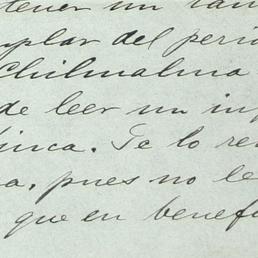 tener un
plar del peri
Chilmalma
de leer un in
inca. Te lo re
a, pues no le
que en benef